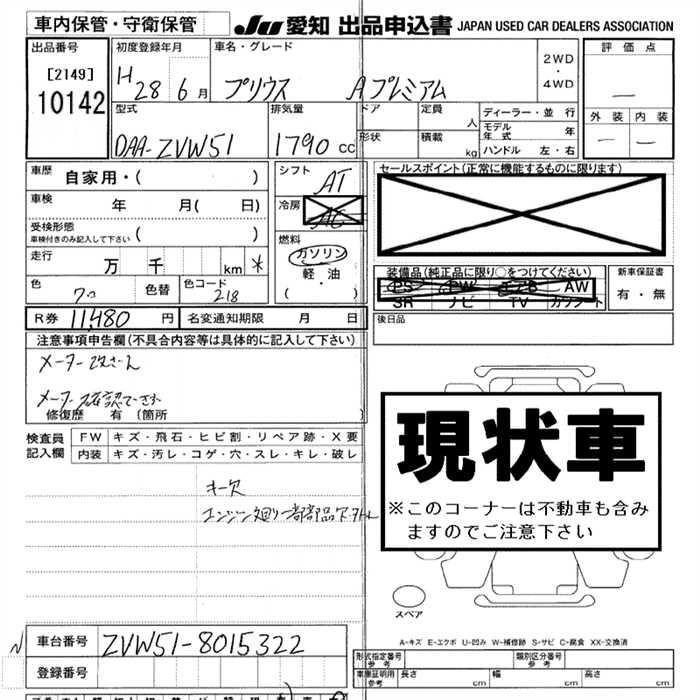 車内保管・守衛保管 JU 愛知 出品申込書 JAPAN USED CAR DEALERS ASSOCIATION
出品番号 初度登録年月 車名・グレード 2WD・4WD 評価点
[2149] 10142 H 28 6月 プリウス Aプレミアム —
型式 排気量 ドア 定員 人 ディーラー・並行 外装 内装
DAA-ZVW51 1790cc 形状 積載 kg モデル年式 年 — —
ハンドル 左・右
車歴 自家用・( ) シフト AT セールスポイント(正常に機能するものに限ります)
車検 年 月( 日) 冷房 AC
受検形態 車検付きのみ記入して下さい ( ) 燃料 ガソリン
走行 万 千 km * 軽・油 装備品(純正品に限り○をつけてください) 新車保証書
色 クロ 色替 色コード 218 ( ) PS PW エアB AW 有・無
SR ナビ TV カワシート
R券 11,480 円 名変通知期限 月 日 後日品
注意事項申告欄(不具合内容等は具体的に記入して下さい)
メーター改ざん
メーター確認できず
修復歴 有 (箇所
検査員記入欄 FW キズ・飛石・ヒビ割・リペア跡・X要
内装 キズ・汚レ・コゲ・穴・スレ・キレ・破レ
現状車
※このコーナーは不動車も含みますのでご注意下さい
キー欠
エンジン廻り一部部品欠
スペア
A-キズ E-エクボ U-凹み W-補修跡 S-サビ C-腐食 XX-交換済
車台番号 ZVW51-8015322 形式指定番号 参考 類別区分番号 参考
登録番号 車庫証明用 参考 長さ cm 幅 cm 高さ cm